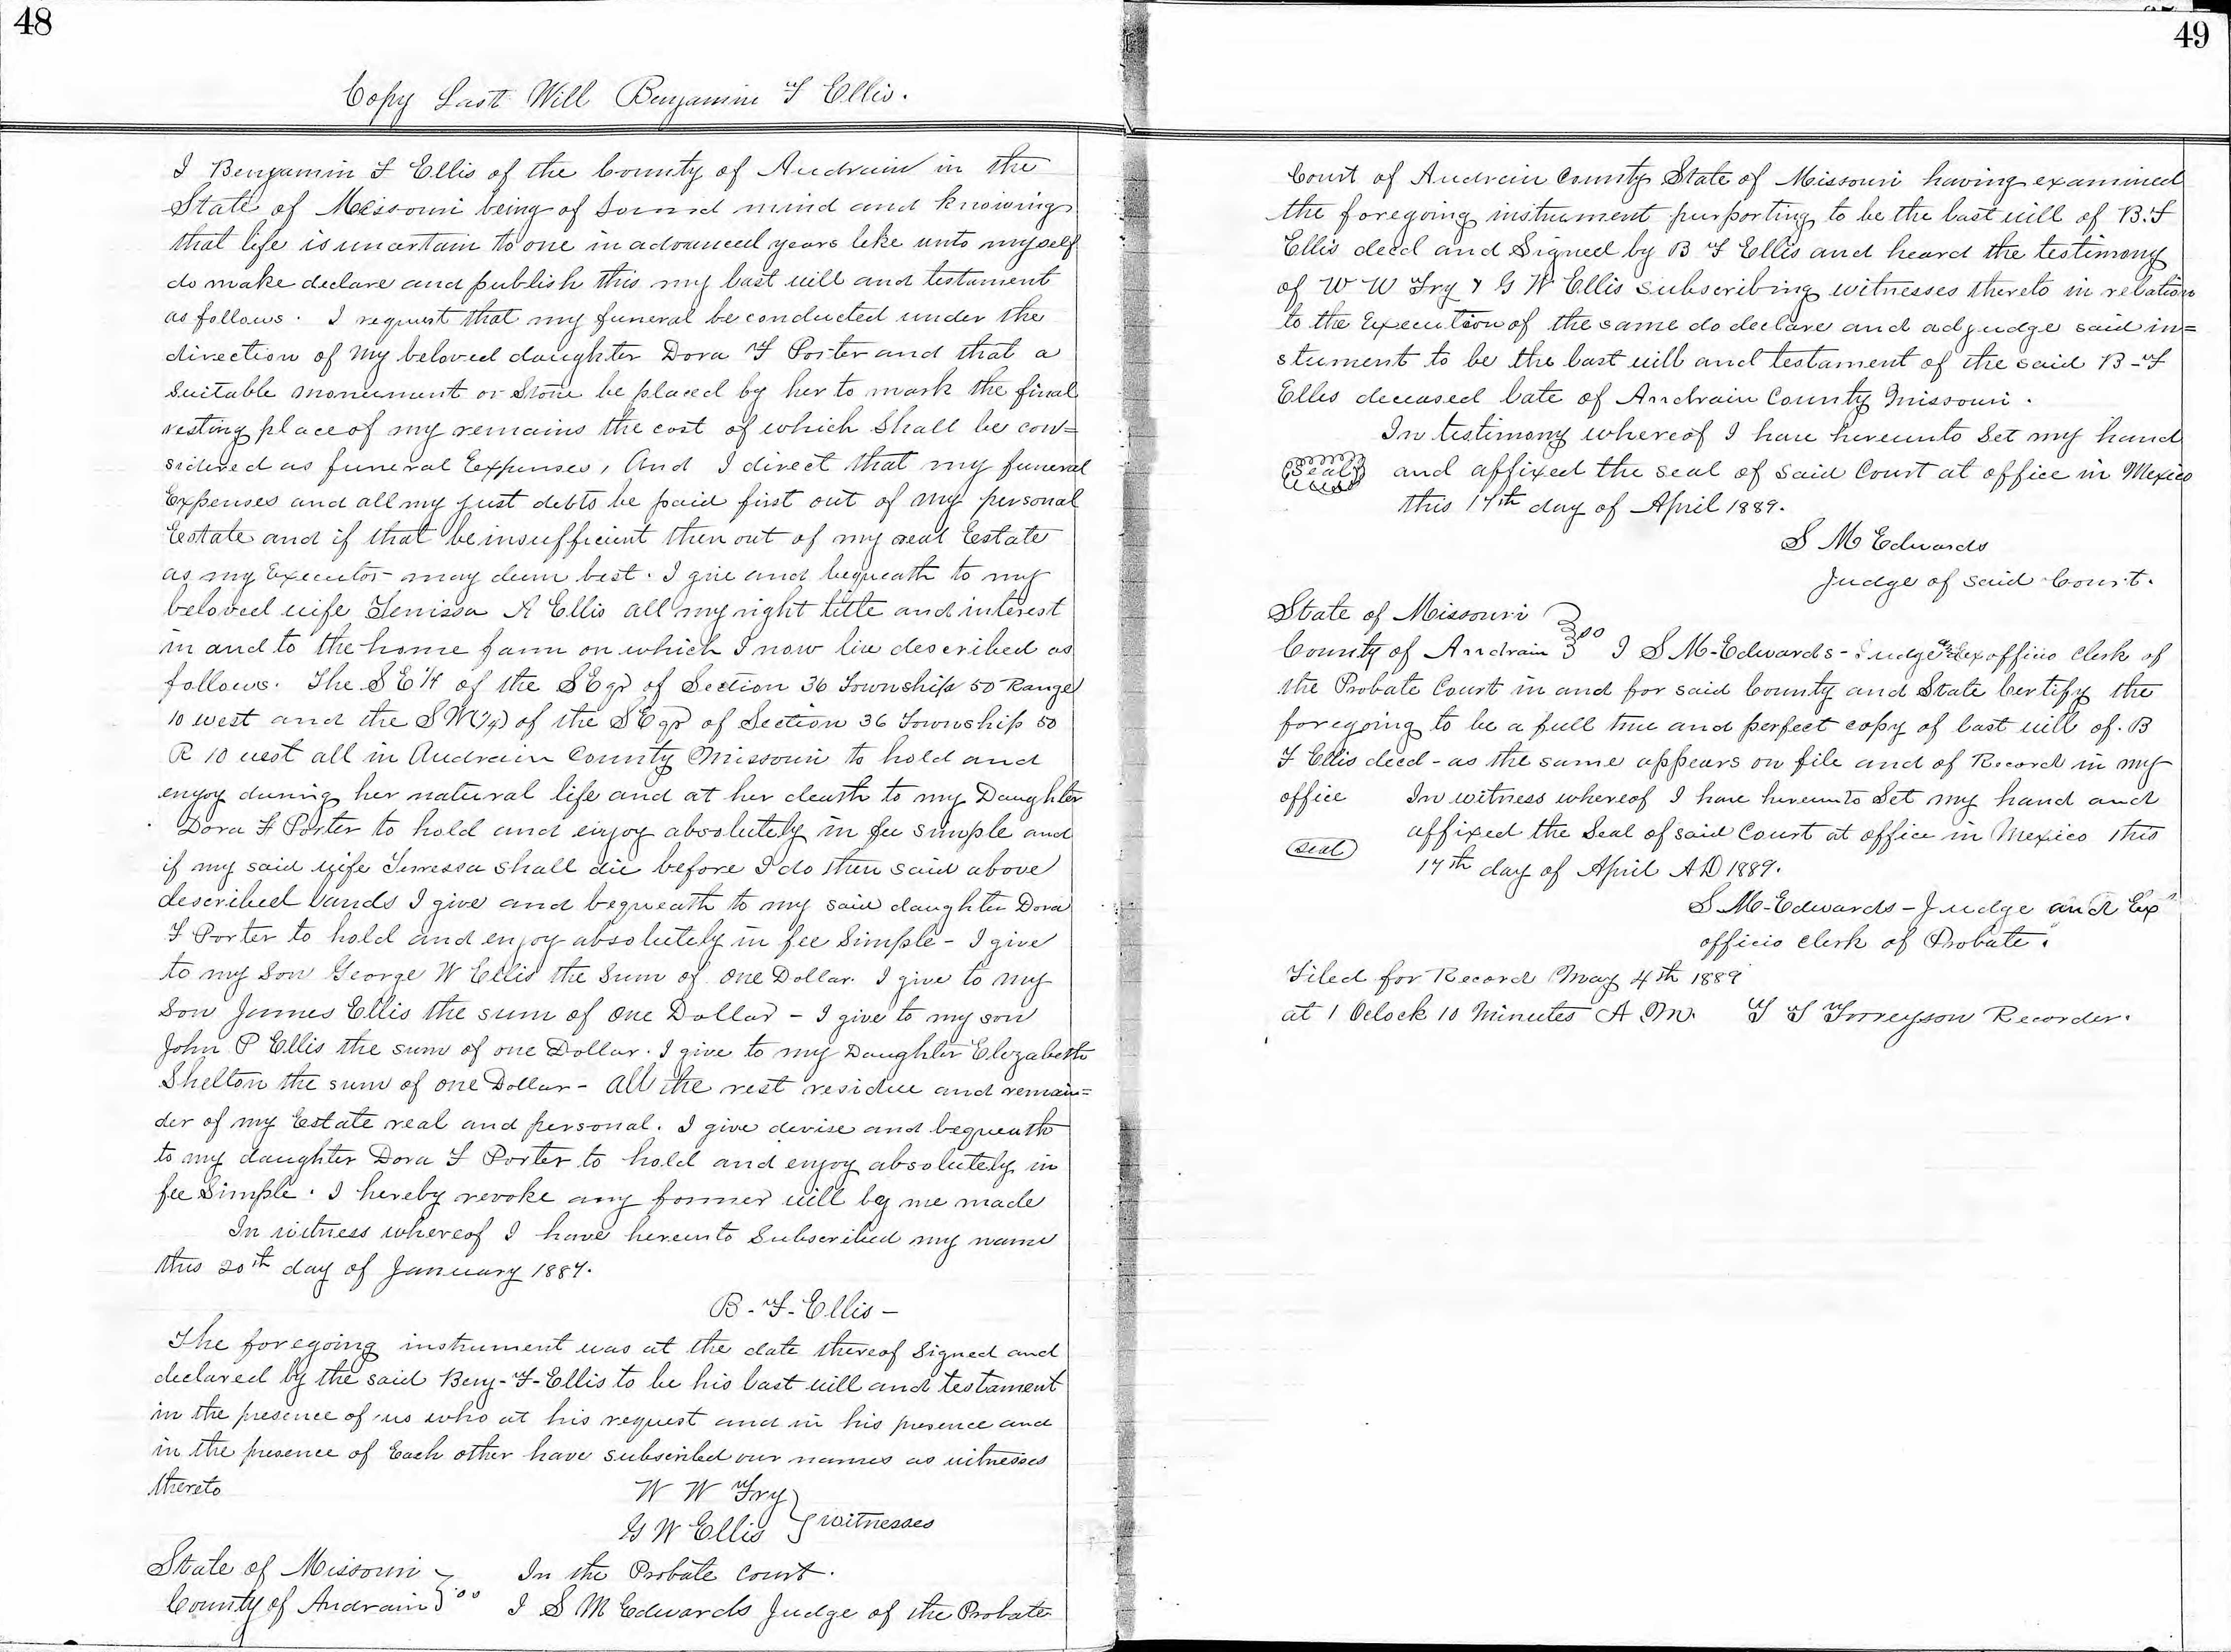 48
Copy Last Will Benjamin F Ellis.
I Benjamin F Ellis of the County of Audrain in the
State of Missouri being of Sound mind and knowing
that life is uncertain to one in advanced years like unto myself
do make declare and publish this my last will and testament
as follows. I request that my funeral be conducted under the
direction of my beloved daughter Dora F Porter and that a
Suitable monument or Stone be placed by her to mark the final
resting place of my remains the cost of which Shall be con=
sidered as funeral Expenses, And I direct that my funeral
Expenses and all my just debts be paid first out of my personal
Estate and if that be insufficient then out of my real Estate
as my Executor may deem best. I give and bequeath to my
beloved wife A Ellis all my right title and interest
in and to the home farm on which I now live described as
follows. The S E 1/4 of the S E qr of Section 36 Township 50 Range
10 west and the S W (1/4) of the S E qr of Section 36 Township 50
R 10 west all in Audrain County Missouri to hold and
enjoy during her natural life and at her death to my Daughter
Dora F Porter to hold and enjoy absolutely in fee simple and
if my said wife shall die before I do then said above
described lands I give and bequeath to my said daughter Dora
F Porter to hold and enjoy absolutely in fee Simple - I give
to my Son George W Ellis the Sum of one Dollar. I give to my
Son James Ellis the sum of one Dollar - I give to my son
John P Ellis the sum of one Dollar. I give to my Daughter Elizabeth
Shelton the sum of one Dollar - all the rest residue and remain=
der of my Estate real and personal. I give devise and bequeath
to my daughter Dora F Porter to hold and enjoy absolutely in
fee Simple. I hereby revoke any former will by me made
In witness whereof I have hereunto Subscribed my name
this 20th day of January 1887.
B. F. Ellis -
The foregoing instrument was at the date thereof Signed and
declared by the said Benj - F - Ellis to be his last will and testament
in the presence of us who at his request and in his presence and
in the presence of Each other have subscribed our names as witnesses
thereto
W W Fry
G W Ellis } witnesses
State of Missouri } In the Probate Court.
County of Audrain } ss I S M Edwards Judge of the Probate
49
Court of Audrain County State of Missouri having examined
the foregoing instrument purporting to be the last will of B. F
Ellis decd and Signed by B F Ellis and heard the testimony
of W W Fry & G W Ellis subscribing witnesses thereto in relation
to the Execution of the same do declare and adjudge said in=
stument to be the last will and testament of the said B - F
Ellis deceased late of Audrain County Missouri.
In testimony whereof I have hereunto Set my hand
(Seal) and affixed the seal of said Court at office in Mexico
this 17th day of April 1889.
S M Edwards
Judge of said Court.
State of Missouri }
County of Audrain } ss I S M - Edwards - Judge and Exofficio Clerk of
the Probate Court in and for said County and State Certify the
foregoing to be a full true and perfect copy of last will of. B
F Ellis decd - as the same appears on file and of Record in my
office In witness whereof I have hereunto Set my hand and
affixed the Seal of said Court at office in Mexico this
(seal) 17th day of April A D 1889.
S. M - Edwards - Judge and Ex
officio Clerk of Probate.
Filed for Record May 4th 1889
at 1 Oclock 10 Minutes A M. Torreyson Recorder.